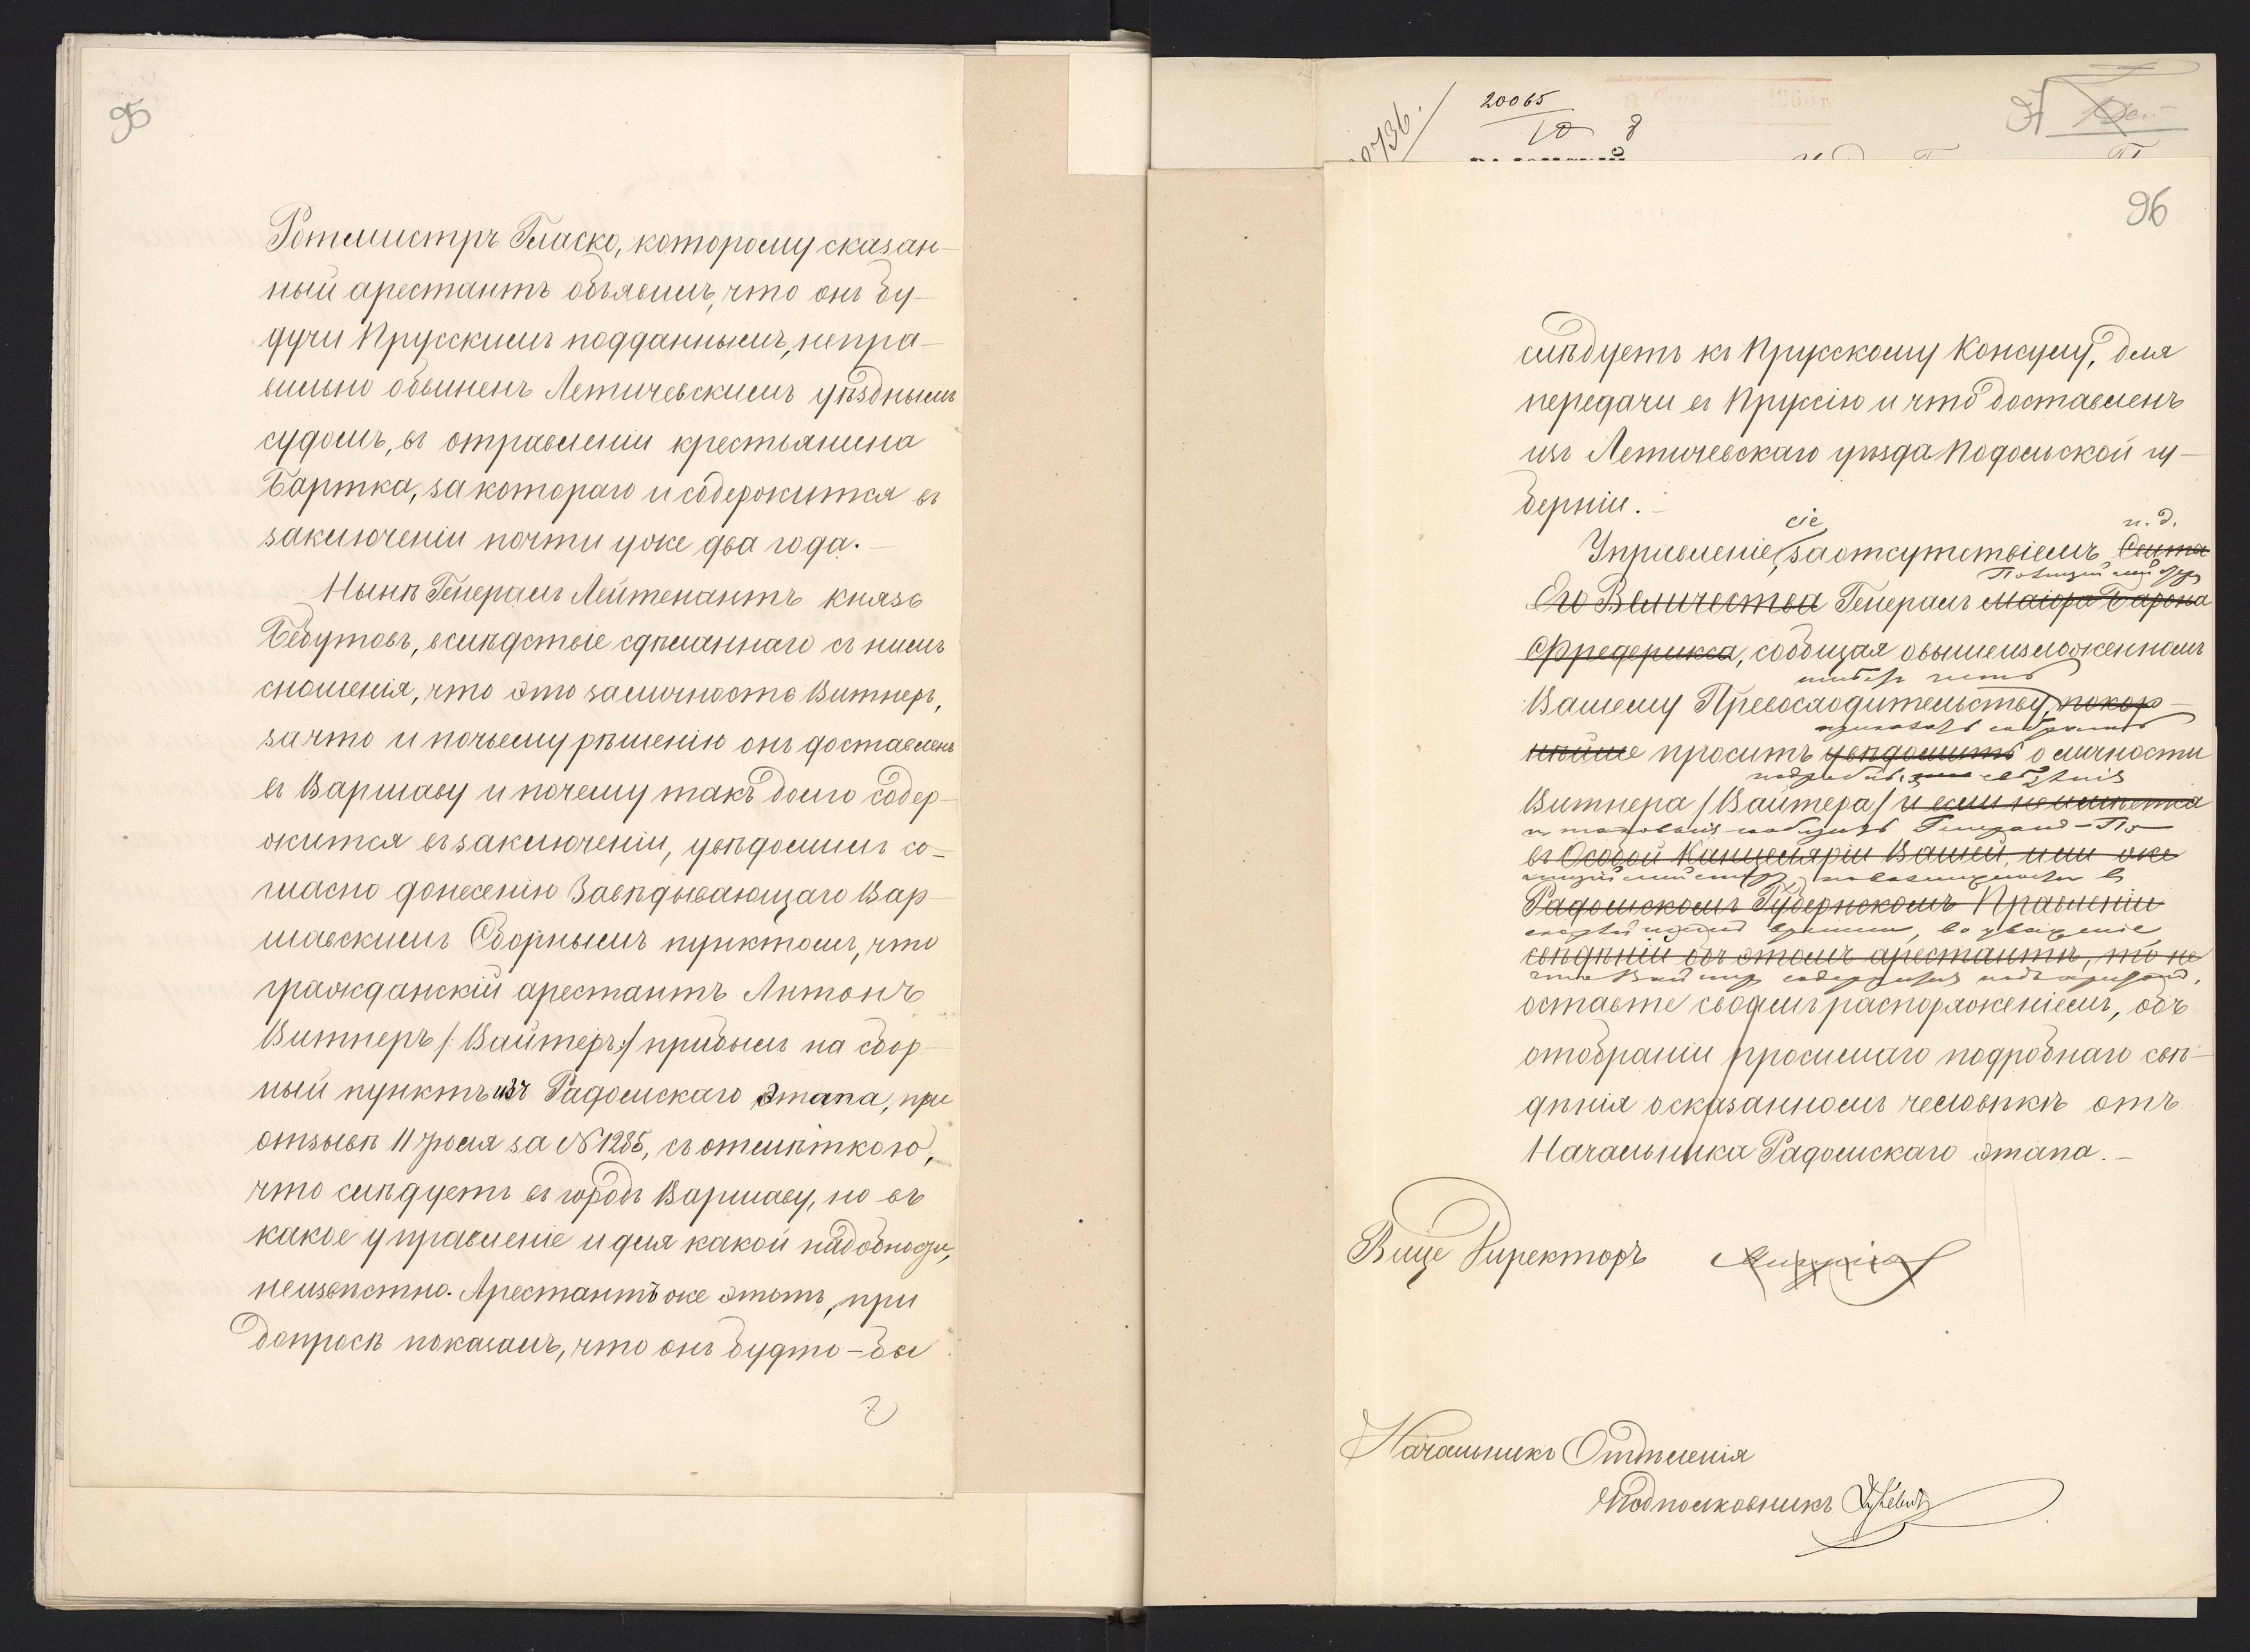 95
Ротмистръ Гласко, которому сказан-
ный арестантъ объявилъ, что онъ бу-
дучи Прусскимъ подданнымъ, непра-
вильно обвиненъ Летичевскимъ уѣзднымъ
судомъ, въ отравленіи крестьянина
Бартка, за котораго и содержится въ
заключеніи почти уже два года.-
Нынѣ Генералъ Лейтенантъ князь
Бебутовъ, вслѣдствіе сдѣланнаго съ нимъ
сношенія, что это за личность Витнеръ,
за что и по чьему рѣшенію онъ доставленъ
въ Варшаву и почему такъ долго содер-
жится въ заключеніи, увѣдомилъ со-
гласно донесенію Завѣдывающаго Вар-
шавскимъ Сборнымъ пунктомъ, что
гражданскій арестантъ Антонъ
Витнеръ /:Вайтеръ:/ прибылъ на сбор-
ный пунктъ изъ Радомскаго этапа, при
отзывѣ 11 Іюля за № 1285, съ отмѣткою,
что слѣдуетъ въ городъ Варшаву, но въ
какое управленіе и для какой надобности,
неизвѣстно. Арестантъ же этотъ, при
допросѣ показалъ, что онъ будто-бы
20065
10
96
слѣдуетъ къ Прусскому Консулу, для
передачи въ Пруссію и что доставленъ
изъ Летичевскаго уѣзда Подольской гу-
берніи.-
сіе и. д.
Управленіе, за отсутствіемъ Свиты
Его Величества Генералъ Маіора Барона
Фредерикса, сообщая о вышеизложенномъ
имѣетъ честь
Вашему Превосходительству, покор-
нѣйше проситъ увѣдомить о личности
Витнера /Вайтера/ и если не имѣется
въ Особой Канцеляріи Вашей, или же
Радомскомъ Губернскомъ Правленіи
во уваженіе
свѣдѣній объ этомъ арестантѣ, то не
что Вайтнер содержится подъ
оставьте своимъ распоряженіемъ, объ
отобраніи просимаго подробнаго свѣ-
дѣнія о сказанномъ человѣкѣ отъ
Начальника Радомскаго этапа.-
Вице Директоръ
Начальникъ Отдѣленія
Подполковникъ